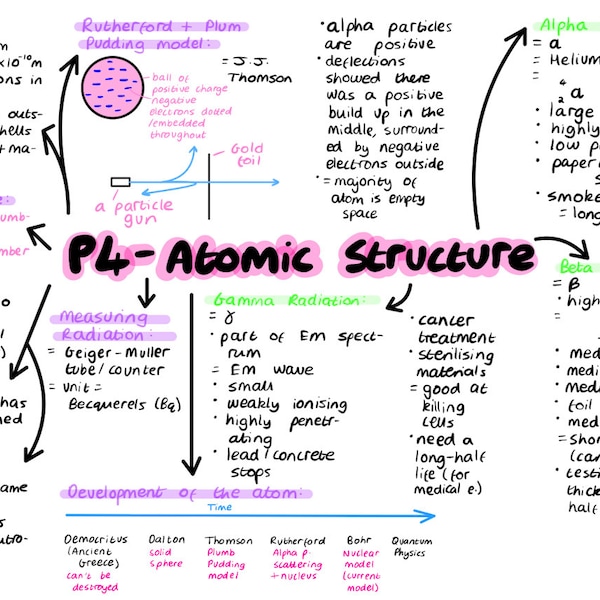 Rutherford + Plum
Pudding model:
= J.J.
Thomson
ball of
positive charge
negative
electrons dotted
/embedded
throughout
Gold
foil
a particle
gun
• alpha particles
are positive
• deflections
showed there
was a positive
build up in the
middle, surround-
ed by negative
electrons outside
= majority of
atom is empty
space
Alpha
= α
= Helium
=
4
2 α
• large
• highly
• low p
• paper
s
• smoke
= lon
m
x10⁻¹⁰m
ons in
outs-
hells
+ ma-
e:
umb-
mber
o
l
)
has
ned
ame
s
utro-
P4 - Atomic Structure
Measuring
Radiation:
= Geiger-Muller
tube/counter
= unit =
Becquerels (Bq)
Gamma Radiation:
= γ
• part of Em spect-
rum
= Em wave
• small
• weakly ionising
• highly penetr-
ating
• lead/concrete
stops
• cancer
treatment
• sterilising
materials
= good at
killing
cells
• need a
long-half
life (for
medical e.)
Beta
= β
• high
=
• med
• medi
• med
foil
• med
= shor
(can
• testi
thick
half
Development of the atom:
Time
Democritus
(Ancient
Greece)
can't be
destroyed
Dalton
solid
sphere
Thomson
Plumb
Pudding
model
Rutherford
Alpha p.
scattering
+ nucleus
Bohr
Nuclear
model
(current
model)
Quantum
Physics